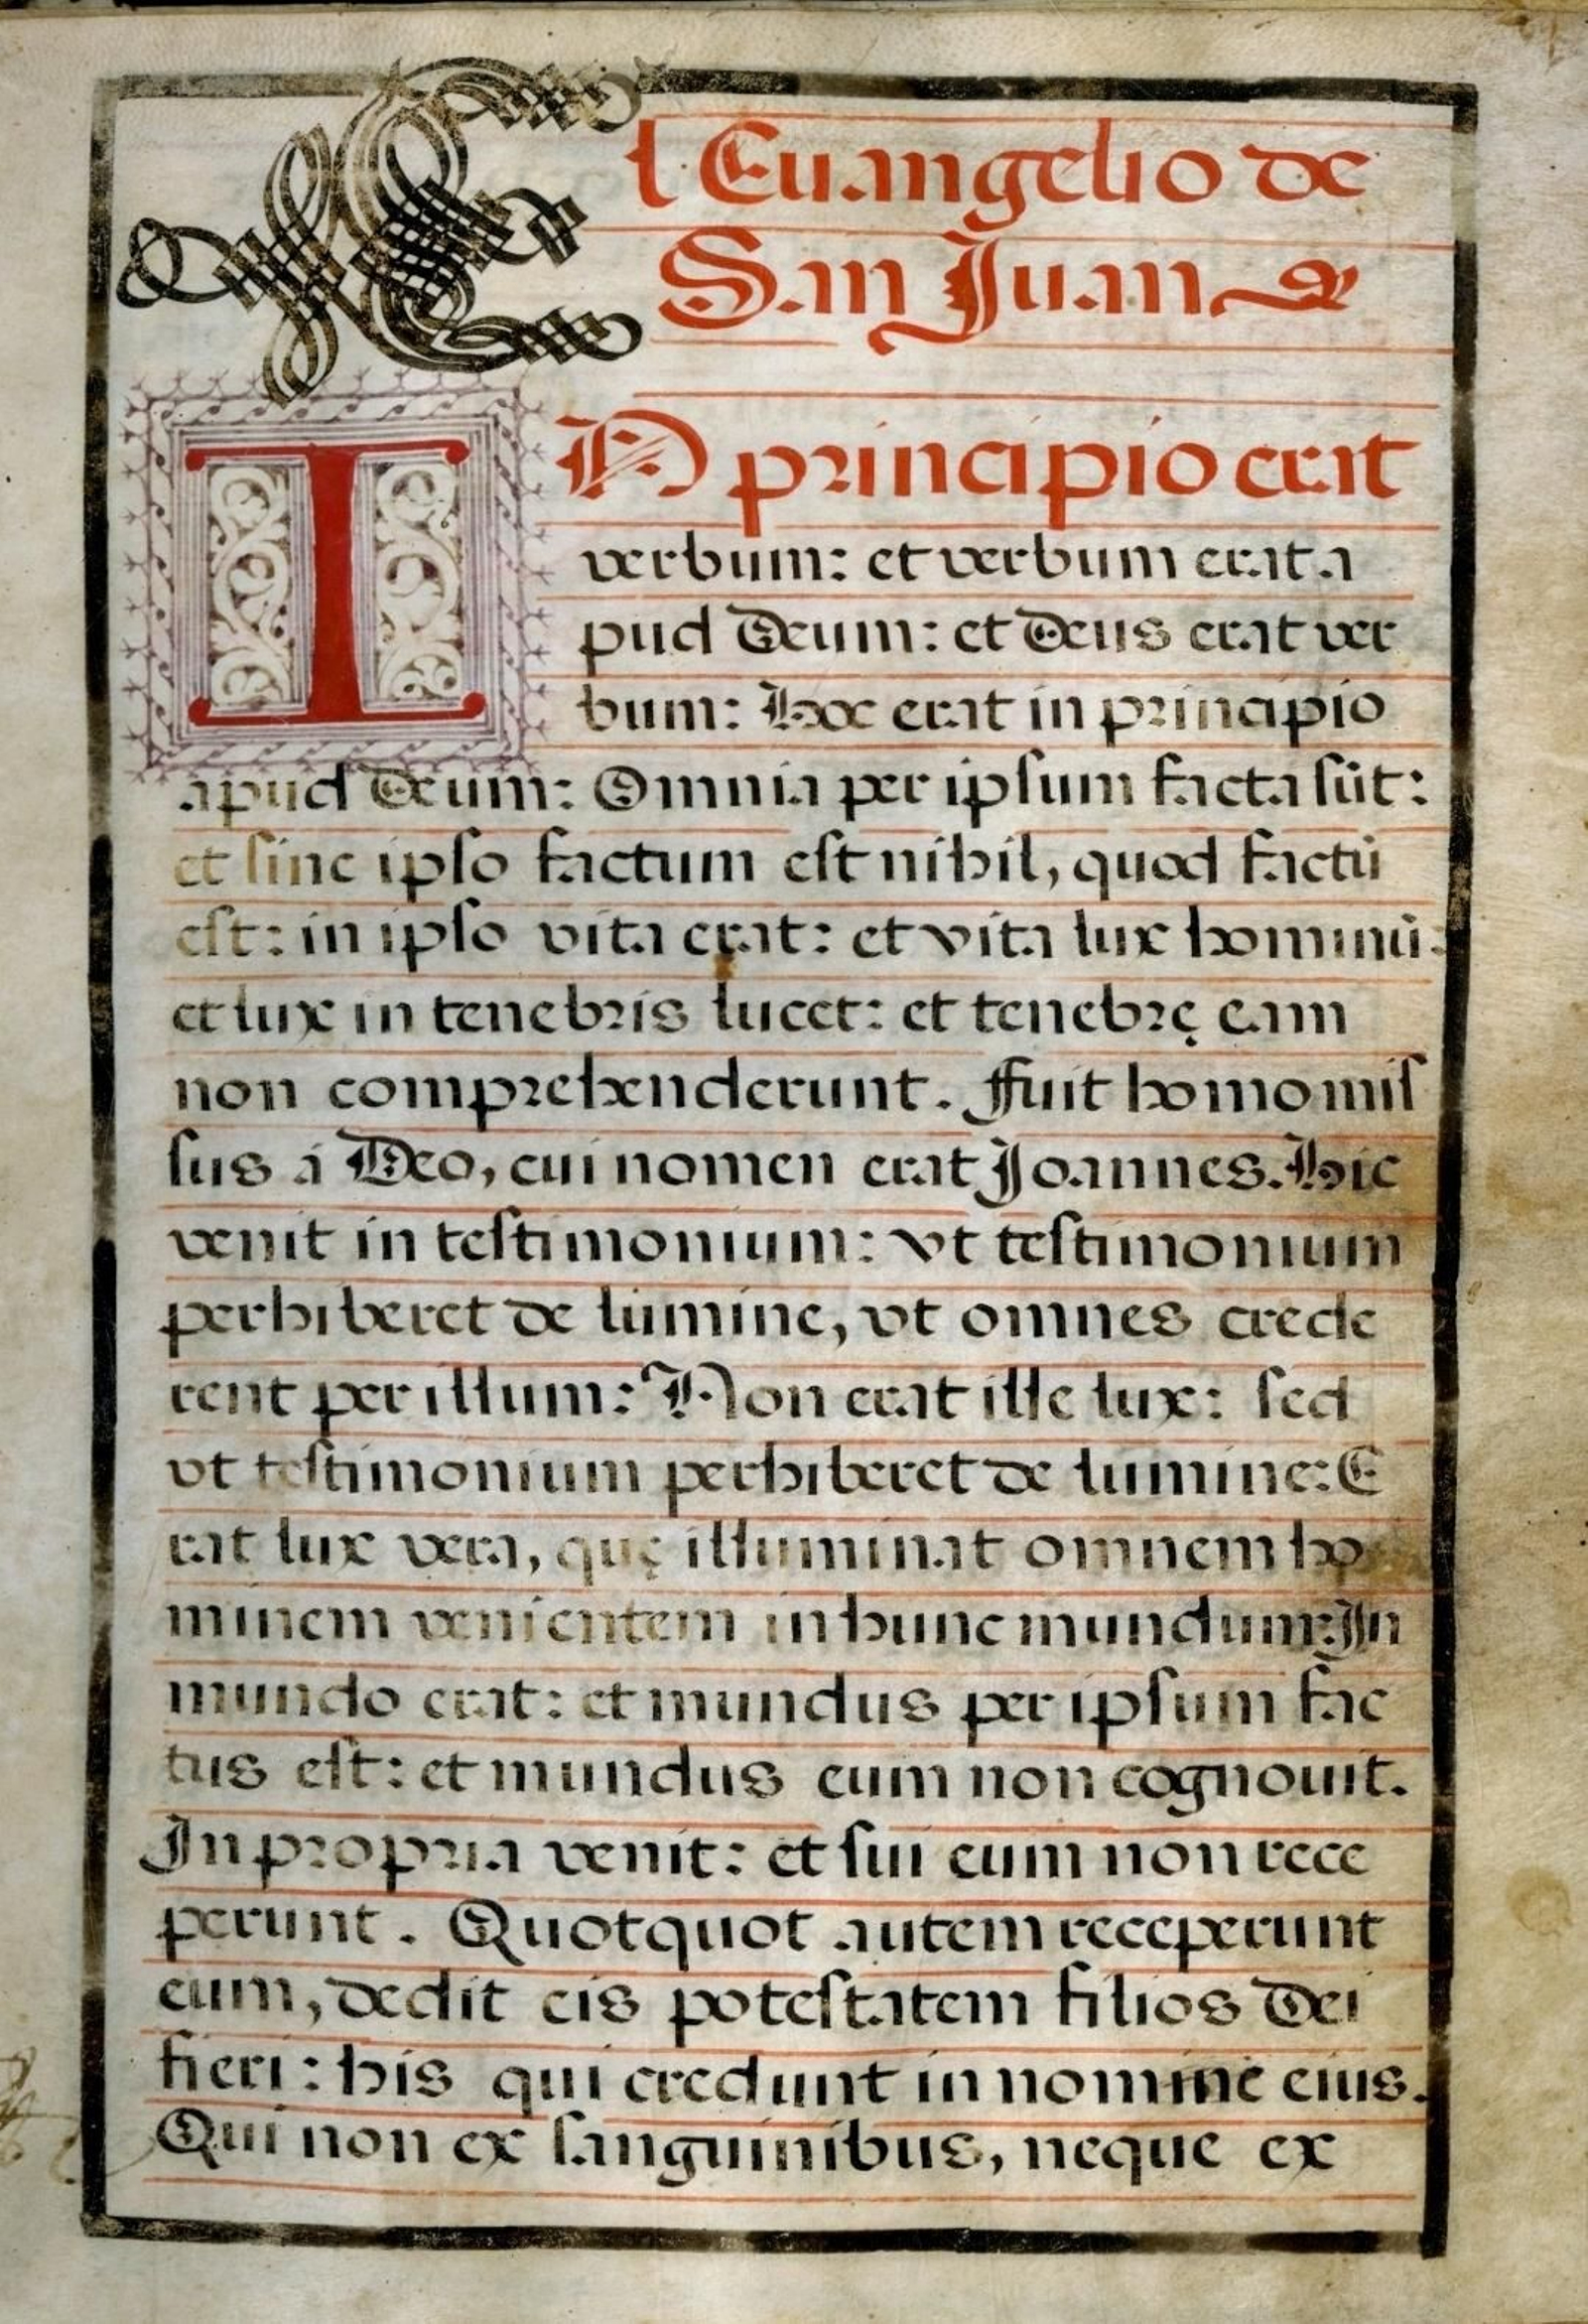 El Euangelio de
San Juan
IN principio erat
verbum: et verbum erat a
pud Deum: et Deus erat ver
bum: Hoc erat in principio
apud Deum: Omnia per ipſum facta ſūt:
et ſine ipſo factum eſt nihil, quod factū
eſt: in ipſo vita erat: et vita lux hominū:
et lux in tenebris lucet: et tenebrę eam
non comprehenderunt. Fuit homo miſ
ſus á Deo, cui nomen erat Joannes. Hic
venit in teſtimonium: vt teſtimonium
perhiberet de lumine, vt omnes crede
rent per illum: Non erat ille lux: ſed
vt teſtimonium perhiberet de lumine: E
rat lux vera, quę illuminat omnem ho
minem venientem in hunc mundum: In
mundo erat: et mundus per ipſum fac
tus eſt: et mundus eum non cognouit.
In propria venit: et ſui eum non rece
perunt. Quotquot autem receperunt
eum, dedit eis poteſtatem filios Dei
fieri: his qui credunt in nomine eius.
Qui non ex ſanguinibus, neque ex